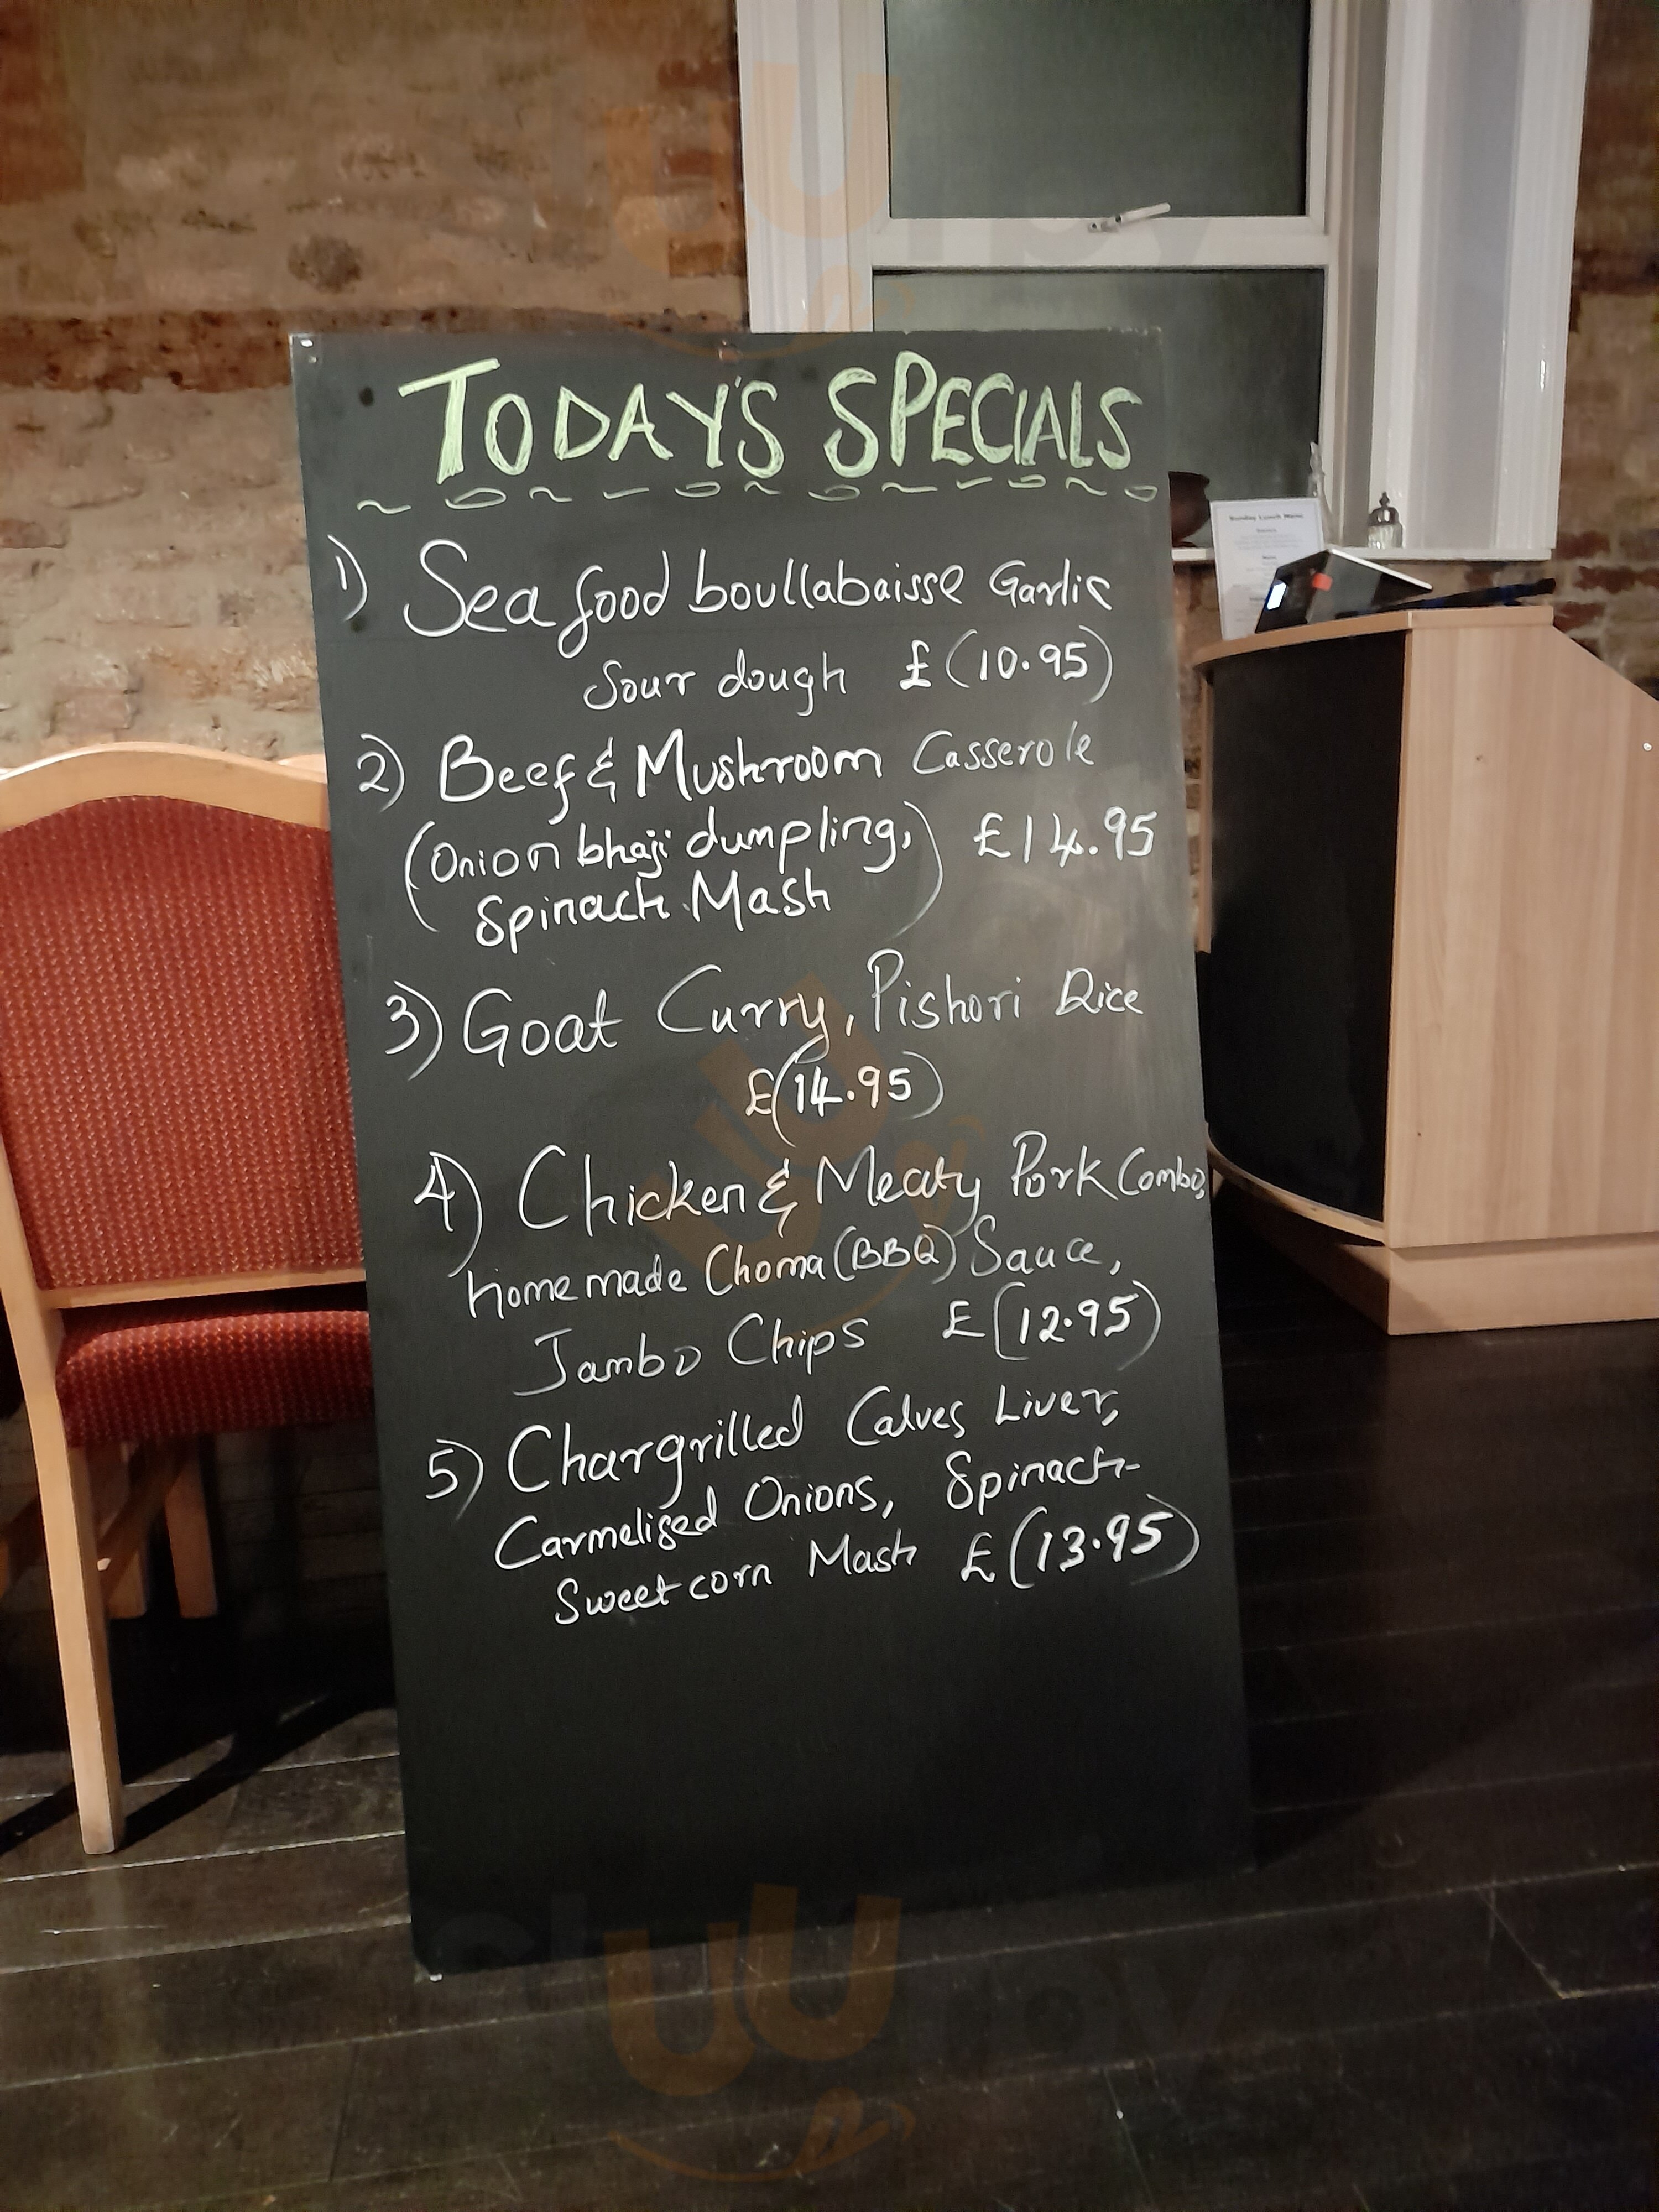 TODAY'S SPECIALS
1) Seafood boullabaisse Garlic
Sour dough £(10.95)
2) Beef & Mushroom Casserole
(Onion bhaji dumpling,
Spinach Mash) £14.95
3) Goat Curry, Pishori Rice
£(14.95)
4) Chicken & Meaty Pork Combo,
homemade Choma (BBQ) Sauce,
Jambo Chips £(12.95)
5) Chargrilled Calves Liver,
Carmelised Onions, Spinach-
Sweetcorn Mash £(13.95)
Sunday Lunch Menu